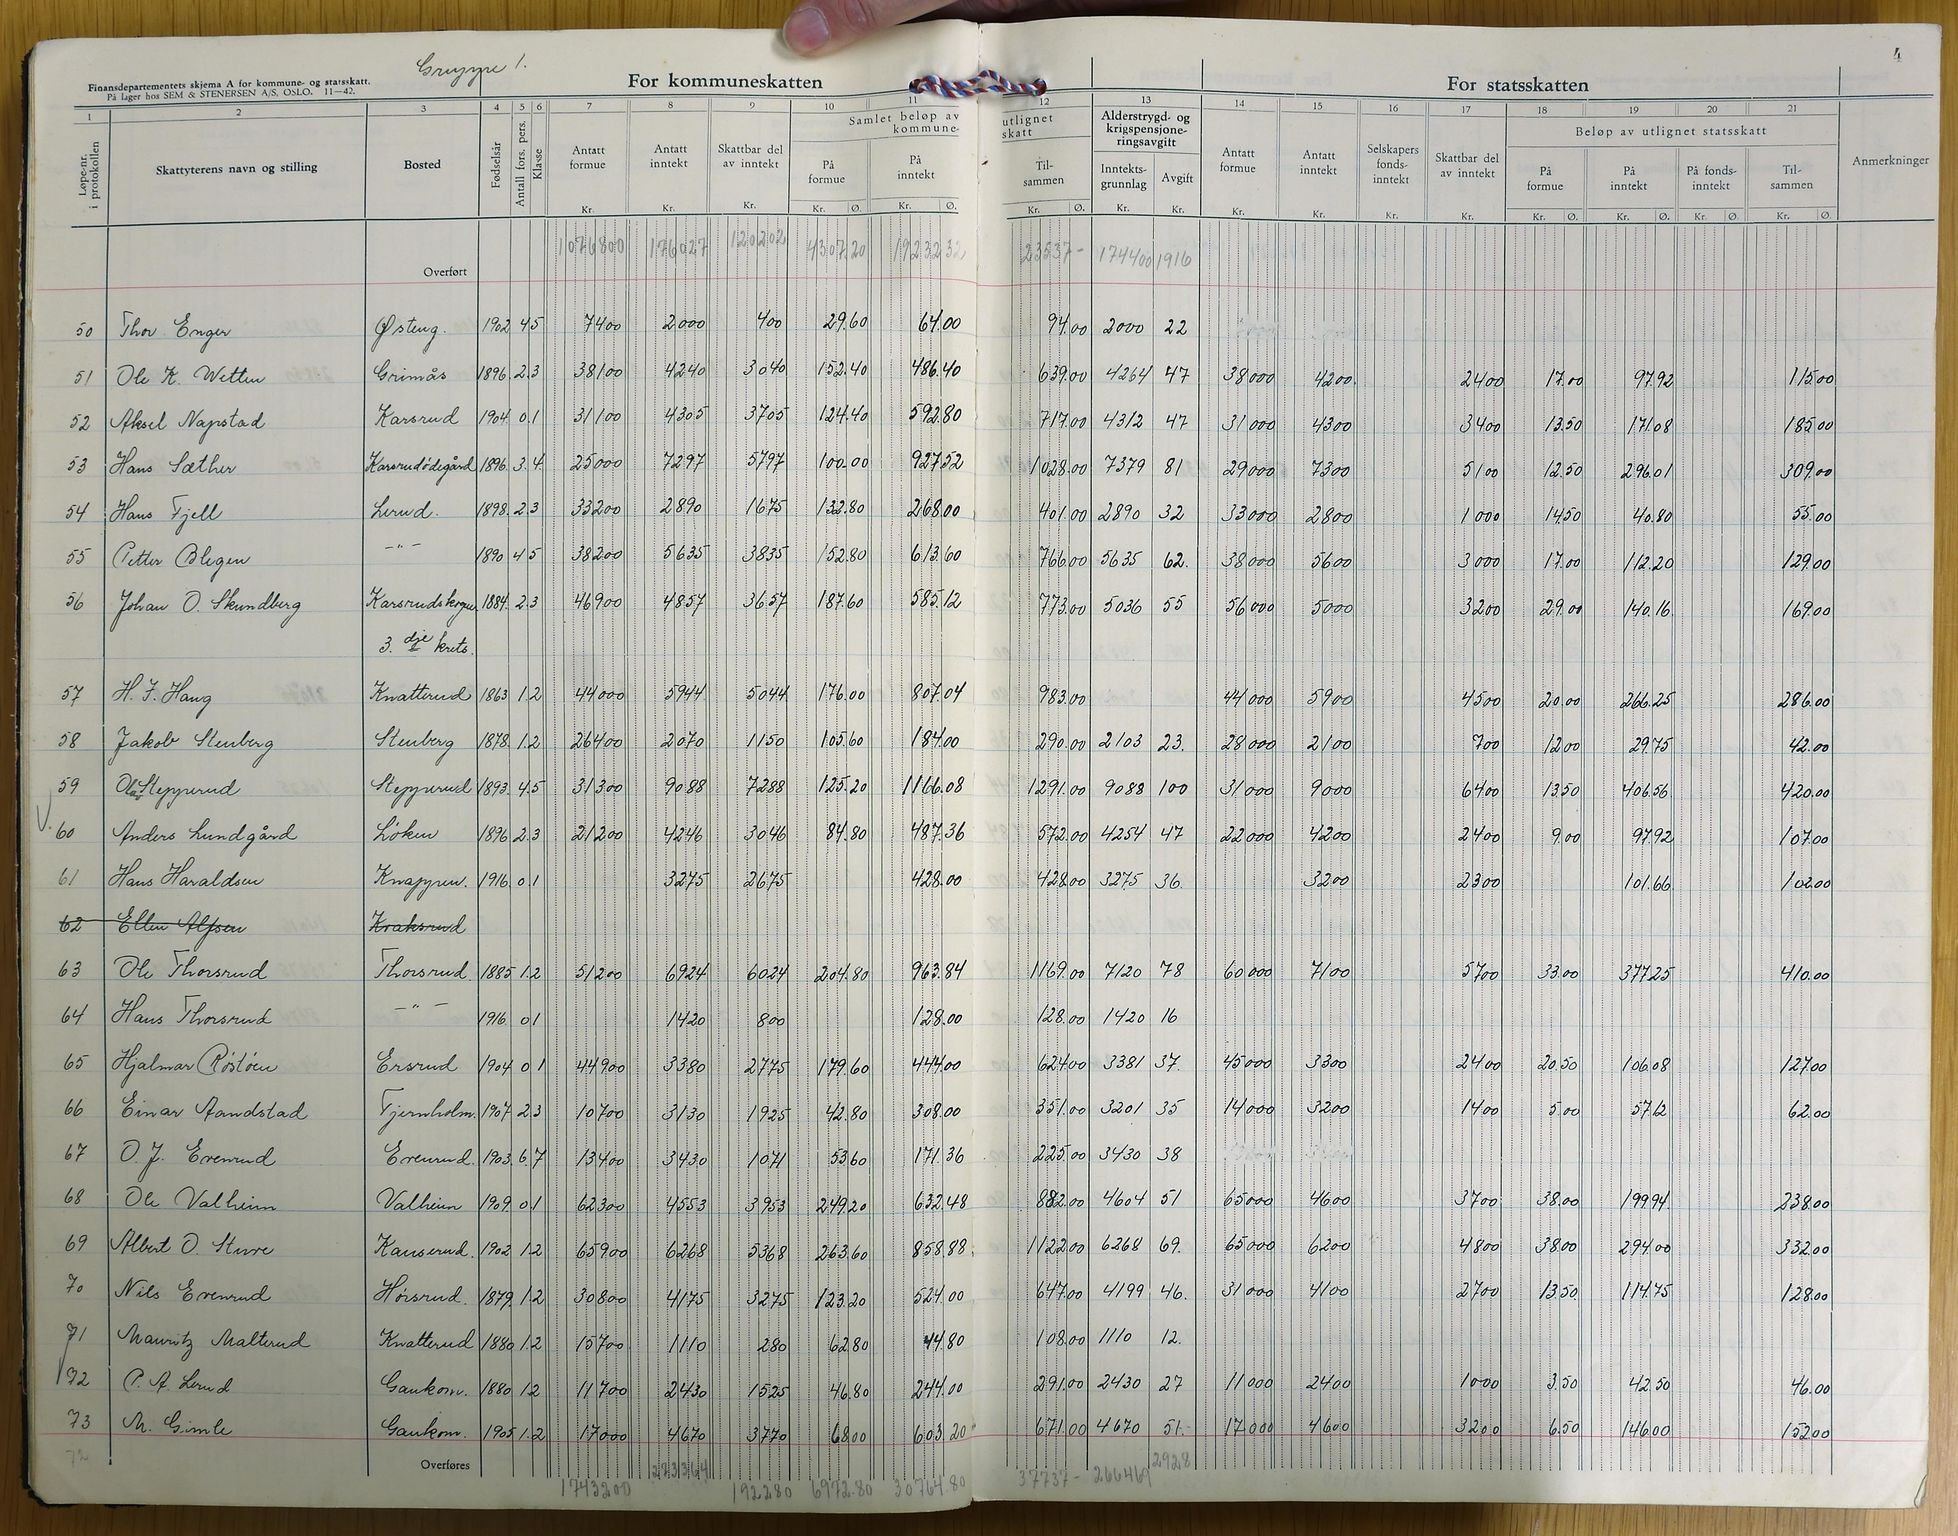 Gruppe 1.
4
Finansdepartementets skjema A for kommune- og statsskatt.
På lager hos SEM & STENERSEN A/S, OSLO. 11—42.
For kommuneskatten
For statsskatten
1 2 3 4 5 6 7 8 9 10 11 12 13 14 15 16 17 18 19 20 21
Løpe-nr. i protokollen
Skattyterens navn og stilling
Bosted
Fødselsår
Antall fors. pers.
Klasse
Antatt formue Kr.
Antatt inntekt Kr.
Skattbar del av inntekt Kr.
Samlet beløp av utlignet kommuneskatt
På formue Kr. Ø.
På inntekt Kr. Ø.
Tilsammen Kr. Ø.
Alderstrygd- og krigspensjoneringsavgift
Inntektsgrunnlag Kr.
Avgift Kr.
Antatt formue Kr.
Antatt inntekt Kr.
Selskapers fondsinntekt Kr.
Skattbar del av inntekt Kr.
Beløp av utlignet statsskatt
På formue Kr. Ø.
På inntekt Kr. Ø.
På fondsinntekt Kr. Ø.
Tilsammen Kr. Ø.
Anmerkninger
Overført 1076800 176027 120202 4307.20 19232.32 23537- 174400 1916
50 Thor Enger Østeng. 1902 4 5 7400 2000 400 29.60 64.00 94.00 2000 22
51 Ole K. Wetten Grimås 1896 2 3 38100 4240 3040 152.40 486.40 639.00 4264 47 38000 4200 2400 17.00 97.92 115.00
52 Aksel Napstad Karsrud 1904 0 1 31100 4305 3705 124.40 592.80 717.00 4312 47 31000 4300 3400 13.50 171.08 185.00
53 Hans Sæther Karsrudødegård 1896 3 4 25000 7297 5797 100.00 927.52 1028.00 7379 81 29000 7300 5100 12.50 296.01 309.00
54 Hans Fjell Lerud. 1898 2 3 33200 2890 1675 132.80 268.00 401.00 2890 32 33000 2800 1000 14.50 40.80 55.00
55 Petter Blegen -"- 1890 4 5 38200 5635 3835 152.80 613.60 766.00 5635 62. 38000 5600 3000 17.00 112.20 129.00
56 Johan O. Skundberg Karsrudskogen 1884 2 3 46900 4857 3657 187.60 585.12 773.00 5036 55 56000 5000 3200 29.00 140.16 169.00
3. dje krets.
57 H. F. Haug Knatterud 1863 1 2 44000 5944 5044 176.00 807.04 983.00 44000 5900 4500 20.00 266.25 286.00
58 Jakob Stenberg Stenberg 1878 1 2 26400 2070 1150 105.60 184.00 290.00 2103 23. 28000 2100 700 12.00 29.75 42.00
59 Stepperud Stepperud 1893 4 5 31300 9088 7288 125.20 1166.08 1291.00 9088 100 31000 9000 6400 13.50 406.56 420.00
60 Anders Lundgård Løken 1896 2 3 21200 4246 3046 84.80 487.36 572.00 4254 47 22000 4200 2400 9.00 97.92 107.00
61 Hans Haraldsen Knappen. 1916 0 1 3275 2675 428.00 428.00 3275 36 3200 2300 101.66 102.00
62 Ellen Alfsen Kraksrud
63 Ole Thorsrud Thorsrud 1885 1 2 51200 6924 6024 204.80 963.84 1169.00 7120 78 60000 7100 5700 33.00 377.25 410.00
64 Hans Thorsrud -"- 1916 0 1 1420 800 128.00 128.00 1420 16
65 Hjalmar Røstøen Ersrud 1904 0 1 44900 3380 2775 179.60 444.00 624.00 3381 37. 45000 3300 2400 20.50 106.08 127.00
66 Einar Aandstad Tjernholm. 1907 2 3 10700 3130 1925 42.80 308.00 351.00 3201 35 14000 3200 1400 5.00 57.12 62.00
67 O. J. Evenrud Evenrud. 1903 6 7 13400 3430 1071 53.60 171.36 225.00 3430 38
68 Ole Valheim Valheim 1909 0 1 62300 4553 3953 249.20 632.48 882.00 4604 51 65000 4600 3700 38.00 199.94 238.00
69 Albert O. Sture Kanserud. 1902 1 2 65900 6268 5368 263.60 858.88 1122.00 6268 69. 65000 6200 4800 38.00 294.00 332.00
70 Nils Evenrud Hørsrud. 1879 1 2 30800 4175 3275 123.20 524.00 647.00 4199 46. 31000 4100 2700 13.50 114.75 128.00
71 Mauritz Malterud Knatterud 1880 1 2 15700 1110 280 62.80 44.80 108.00 1110 12.
72 P. A. Lerud Gaukom. 1880 1 2 11700 2430 1525 46.80 244.00 291.00 2430 27 11000 2400 1000 3.50 42.50 46.00
73 M. Gimle Gaukom. 1905 1 2 17000 4670 3770 68.00 603.20 671.00 4670 51. 17000 4600 3200 6.50 146.00 152.00
72 Overføres 1743200 273364 192280 6972.80 30764.80 37737- 266469 2928